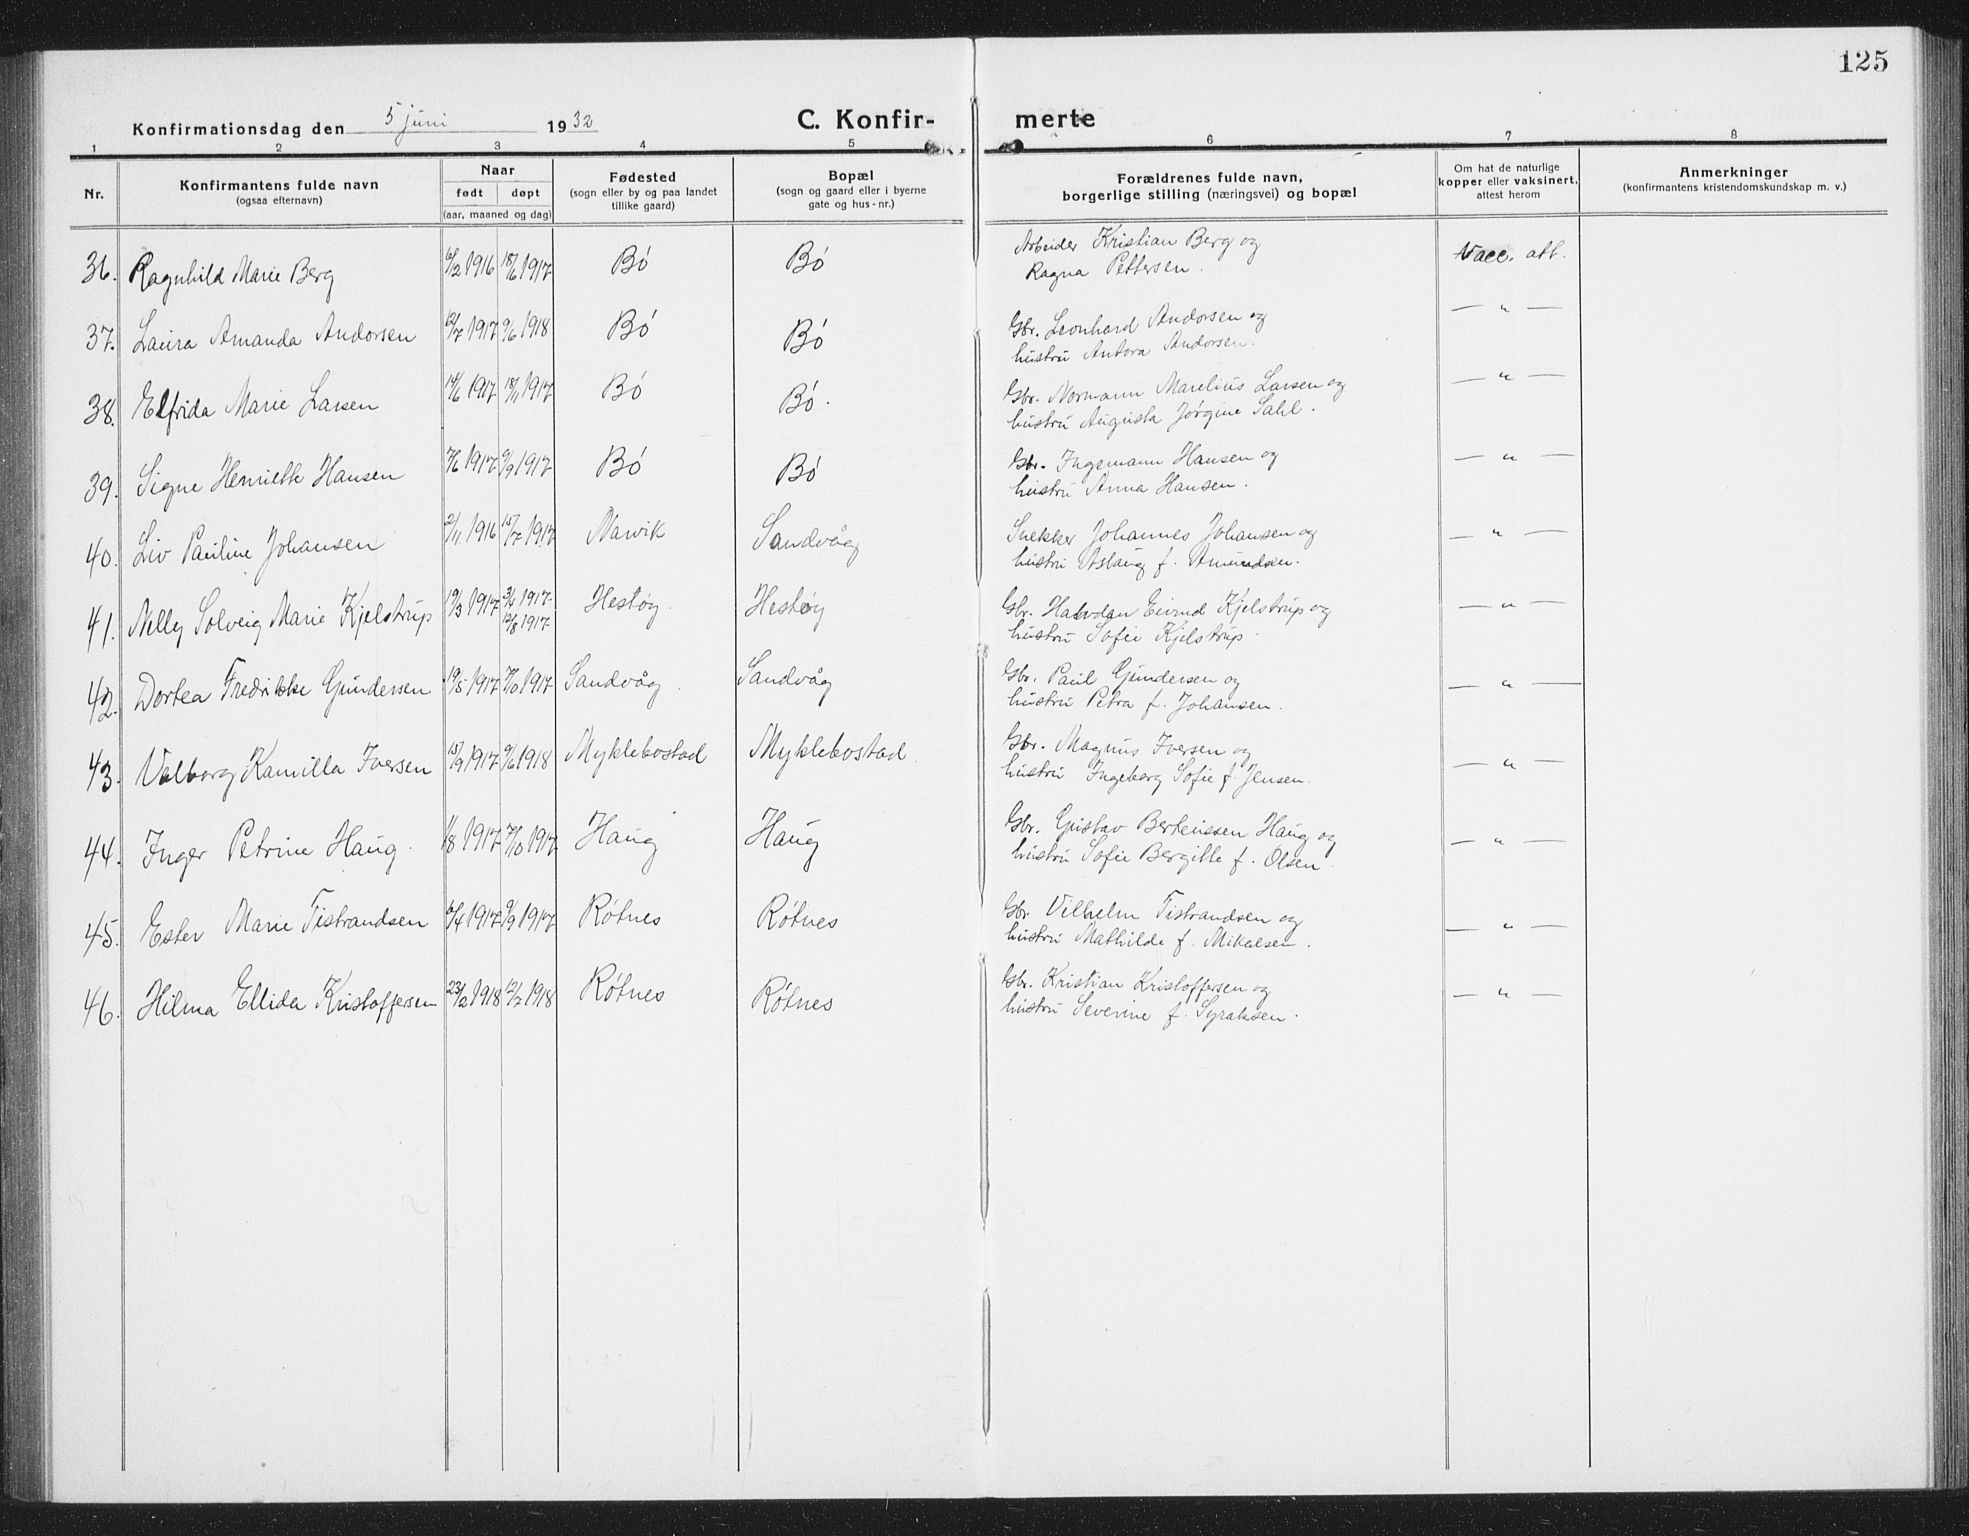 125
Konfirmationsdag den 5 juni 1932 C. Konfirmerte
1 2 3 4 5 6 7 8
Nr.
Konfirmantens fulde navn
(ogsaa efternavn)
Naar
født døpt
(aar, maaned og dag)
Fødested
(sogn eller by og paa landet
tillike gaard)
Bopæl
(sogn og gaard eller i byerne
gate og hus-nr.)
Forældrenes fulde navn,
borgerlige stilling (næringsvei) og bopæl
Om hat de naturlige
kopper eller vaksinert,
attest herom
Anmerkninger
(konfirmantens kristendomskundskap m. v.)
36. Ragnhild Marie Berg 6/2 1916 18/6 1917 Bó Bó Arbeider Kristian Berg og Vacc. att.
Ragna Pettersen.
37. Laura Amanda Andorsen 12/7 1917 9/6 1918 Bó Bó Gbr. Leonhard Andorsen og — " —
hustru Antora Andorsen.
38. Elfrida Marie Larsen 14/6 1917 18/11 1917 Bó Bó. Gbr. Normann Marelius Larsen og — " —
hustru Augusta Jørgine Sahl.
39. Signe Henriette Hansen 7/6 1917 9/9 1917 Bó Bó Gbr. Ingemann Hansen og — " —
hustru Anna Hansen.
40. Liv Pauline Johansen 2/11 1916 15/7 1917 Narvik Sandvåg Snekker Johannes Johansen og — " —
hustru Aslaug f. Amundsen.
41. Nelly Solveig Marie Kjelstrup 19/3 1917 3/4 1917 - 12/8 1917 Hestøy. Hestøy Gbr. Halvdan Eivind Kjelstrup og — " —
hustru Sofie Kjelstrup.
42. Dortea Fredrikke Gundersen 19/5 1917 7/10 1917 Sandvåg. Sandvåg Gbr. Paul Gundersen og — " —
hustru Petra f. Johansen.
43. Valborg Kamilla Iversen 15/9 1917 9/6 1918 Myklebostad Myklebostad. Gbr. Magnus Iversen og — " —
hustru Ingeborg Sofie f. Jensen.
44. Inger Petrine Haug. 1/8 1917 7/10 1917 Haug Haug Gbr. Gustav Berteussen Haug og — " —
hustru Sofie Bergitte f. Olsen.
45. Ester Marie Tistrandsen 6/4 1917 9/9 1917 Rótnes Rótnes Gbr. Vilhelm Tistrandsen og — " —
hustru Mathilde f. Mikalsen.
46. Hilma Ellida Kristoffersen 23/2 1918 12/7 1918 Rótnes Rótnes Gbr. Kristian Kristoffersen og — " —
hustru Severine f. Syraksen.